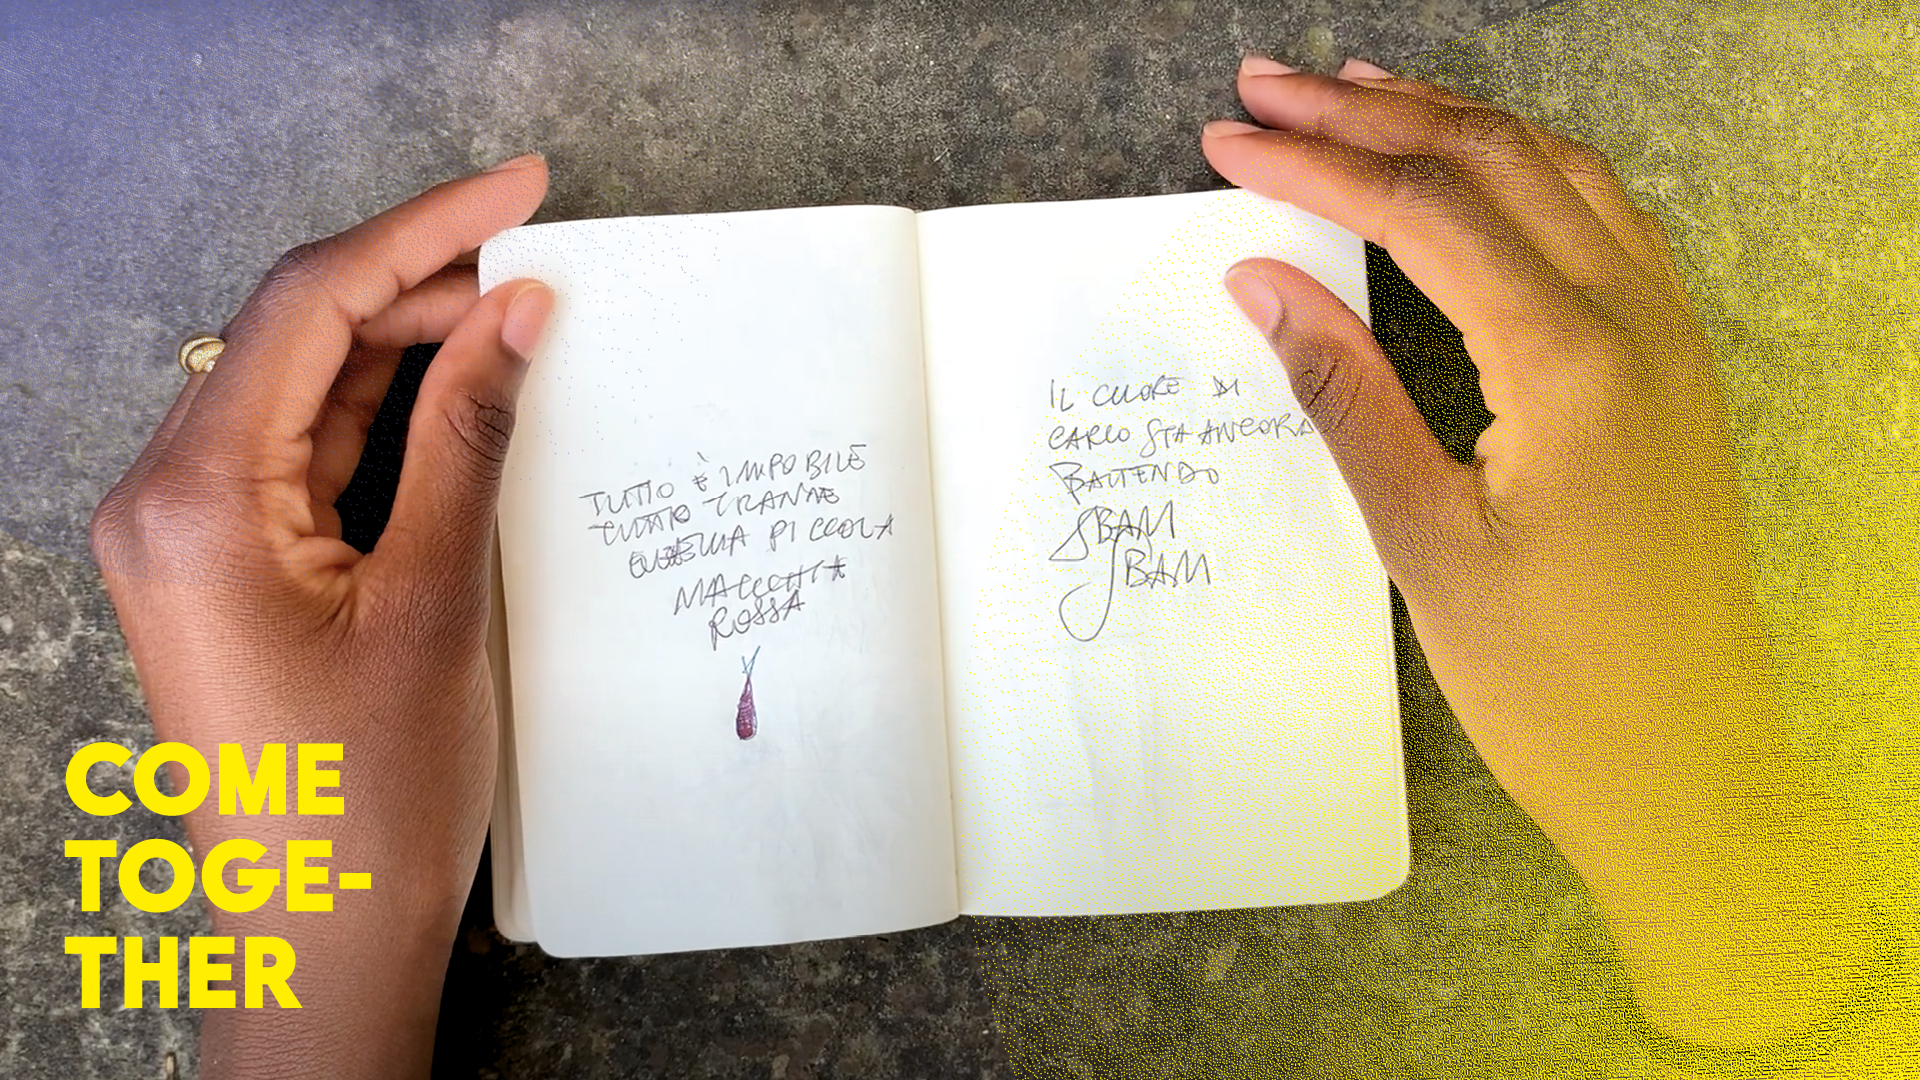 TUTTO È IMPOBILE
TUTTO TRANNE
QUELLA PICCOLA
MACCHIA
ROSSA
IL CUORE DI
CARLO STA ANCORA
BATTENDO
SBAM
SBAM
COME
TOGE-
THER